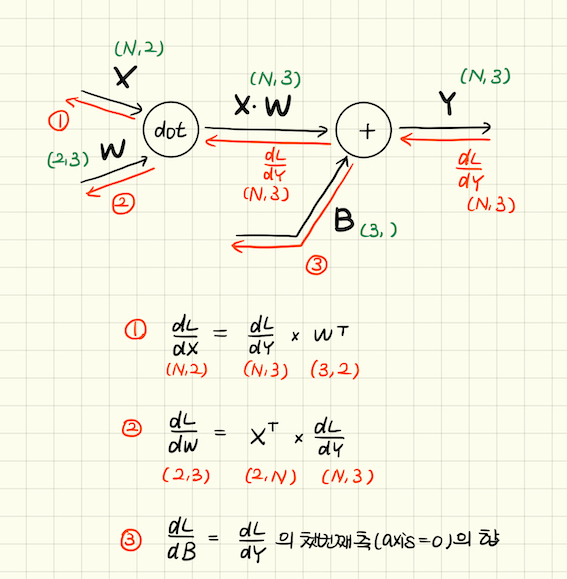 (N,2)
X
(N,3)
X·W
(N,3)
Y
①
dot
+
(2,3) W
dL/dY
(N,3)
dL/dY
(N,3)
②
B (3,)
③
① dL/dX = dL/dY × Wᵀ
(N,2) (N,3) (3,2)
② dL/dW = Xᵀ × dL/dY
(2,3) (2,N) (N,3)
③ dL/dB = dL/dY 의 첫번째축(axis=0)의 합